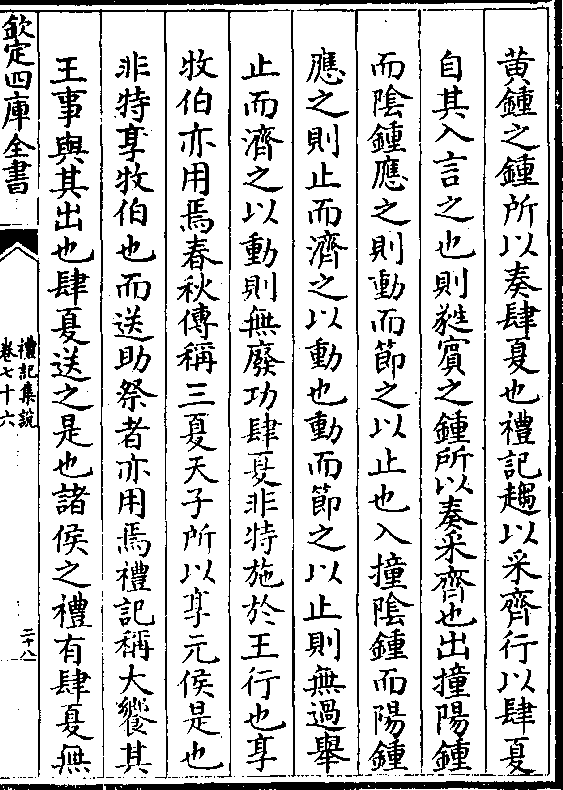 黄鍾之鍾所以奏肆夏也禮記趨以采齊行以肆夏
自其入言之也則蕤賓之鍾所以奏采齊也出撞陽鍾
而隂鍾應之則動而節之以止也入撞隂鍾而陽鍾
應之則止而濟之以動也動而節之以止則無過舉
止而濟之以動則無廢功肆夏非特施於王行也享
牧伯亦用焉春秋傳稱三夏天子所以享元侯是也
非特享牧伯也而送助祭者亦用焉禮記稱大饗其
王事與其出也肆夏送之是也諸侯之禮有肆夏無
欽定四庫全書
禮記集說
卷七十六
二十八